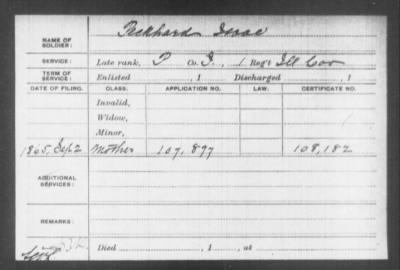 NAME OF SOLDIER: Peckhard Isaac
SERVICE: Late rank, P Co. I, 1 Reg't Ill Cav
TERM OF SERVICE: Enlisted , 1 Discharged , 1
DATE OF FILING. CLASS. APPLICATION NO. LAW. CERTIFICATE NO.
Invalid,
Widow,
Minor,
1865, Sep 2 Mother 107,897 108,182
ADDITIONAL SERVICES:
REMARKS:
Died , 1 , at